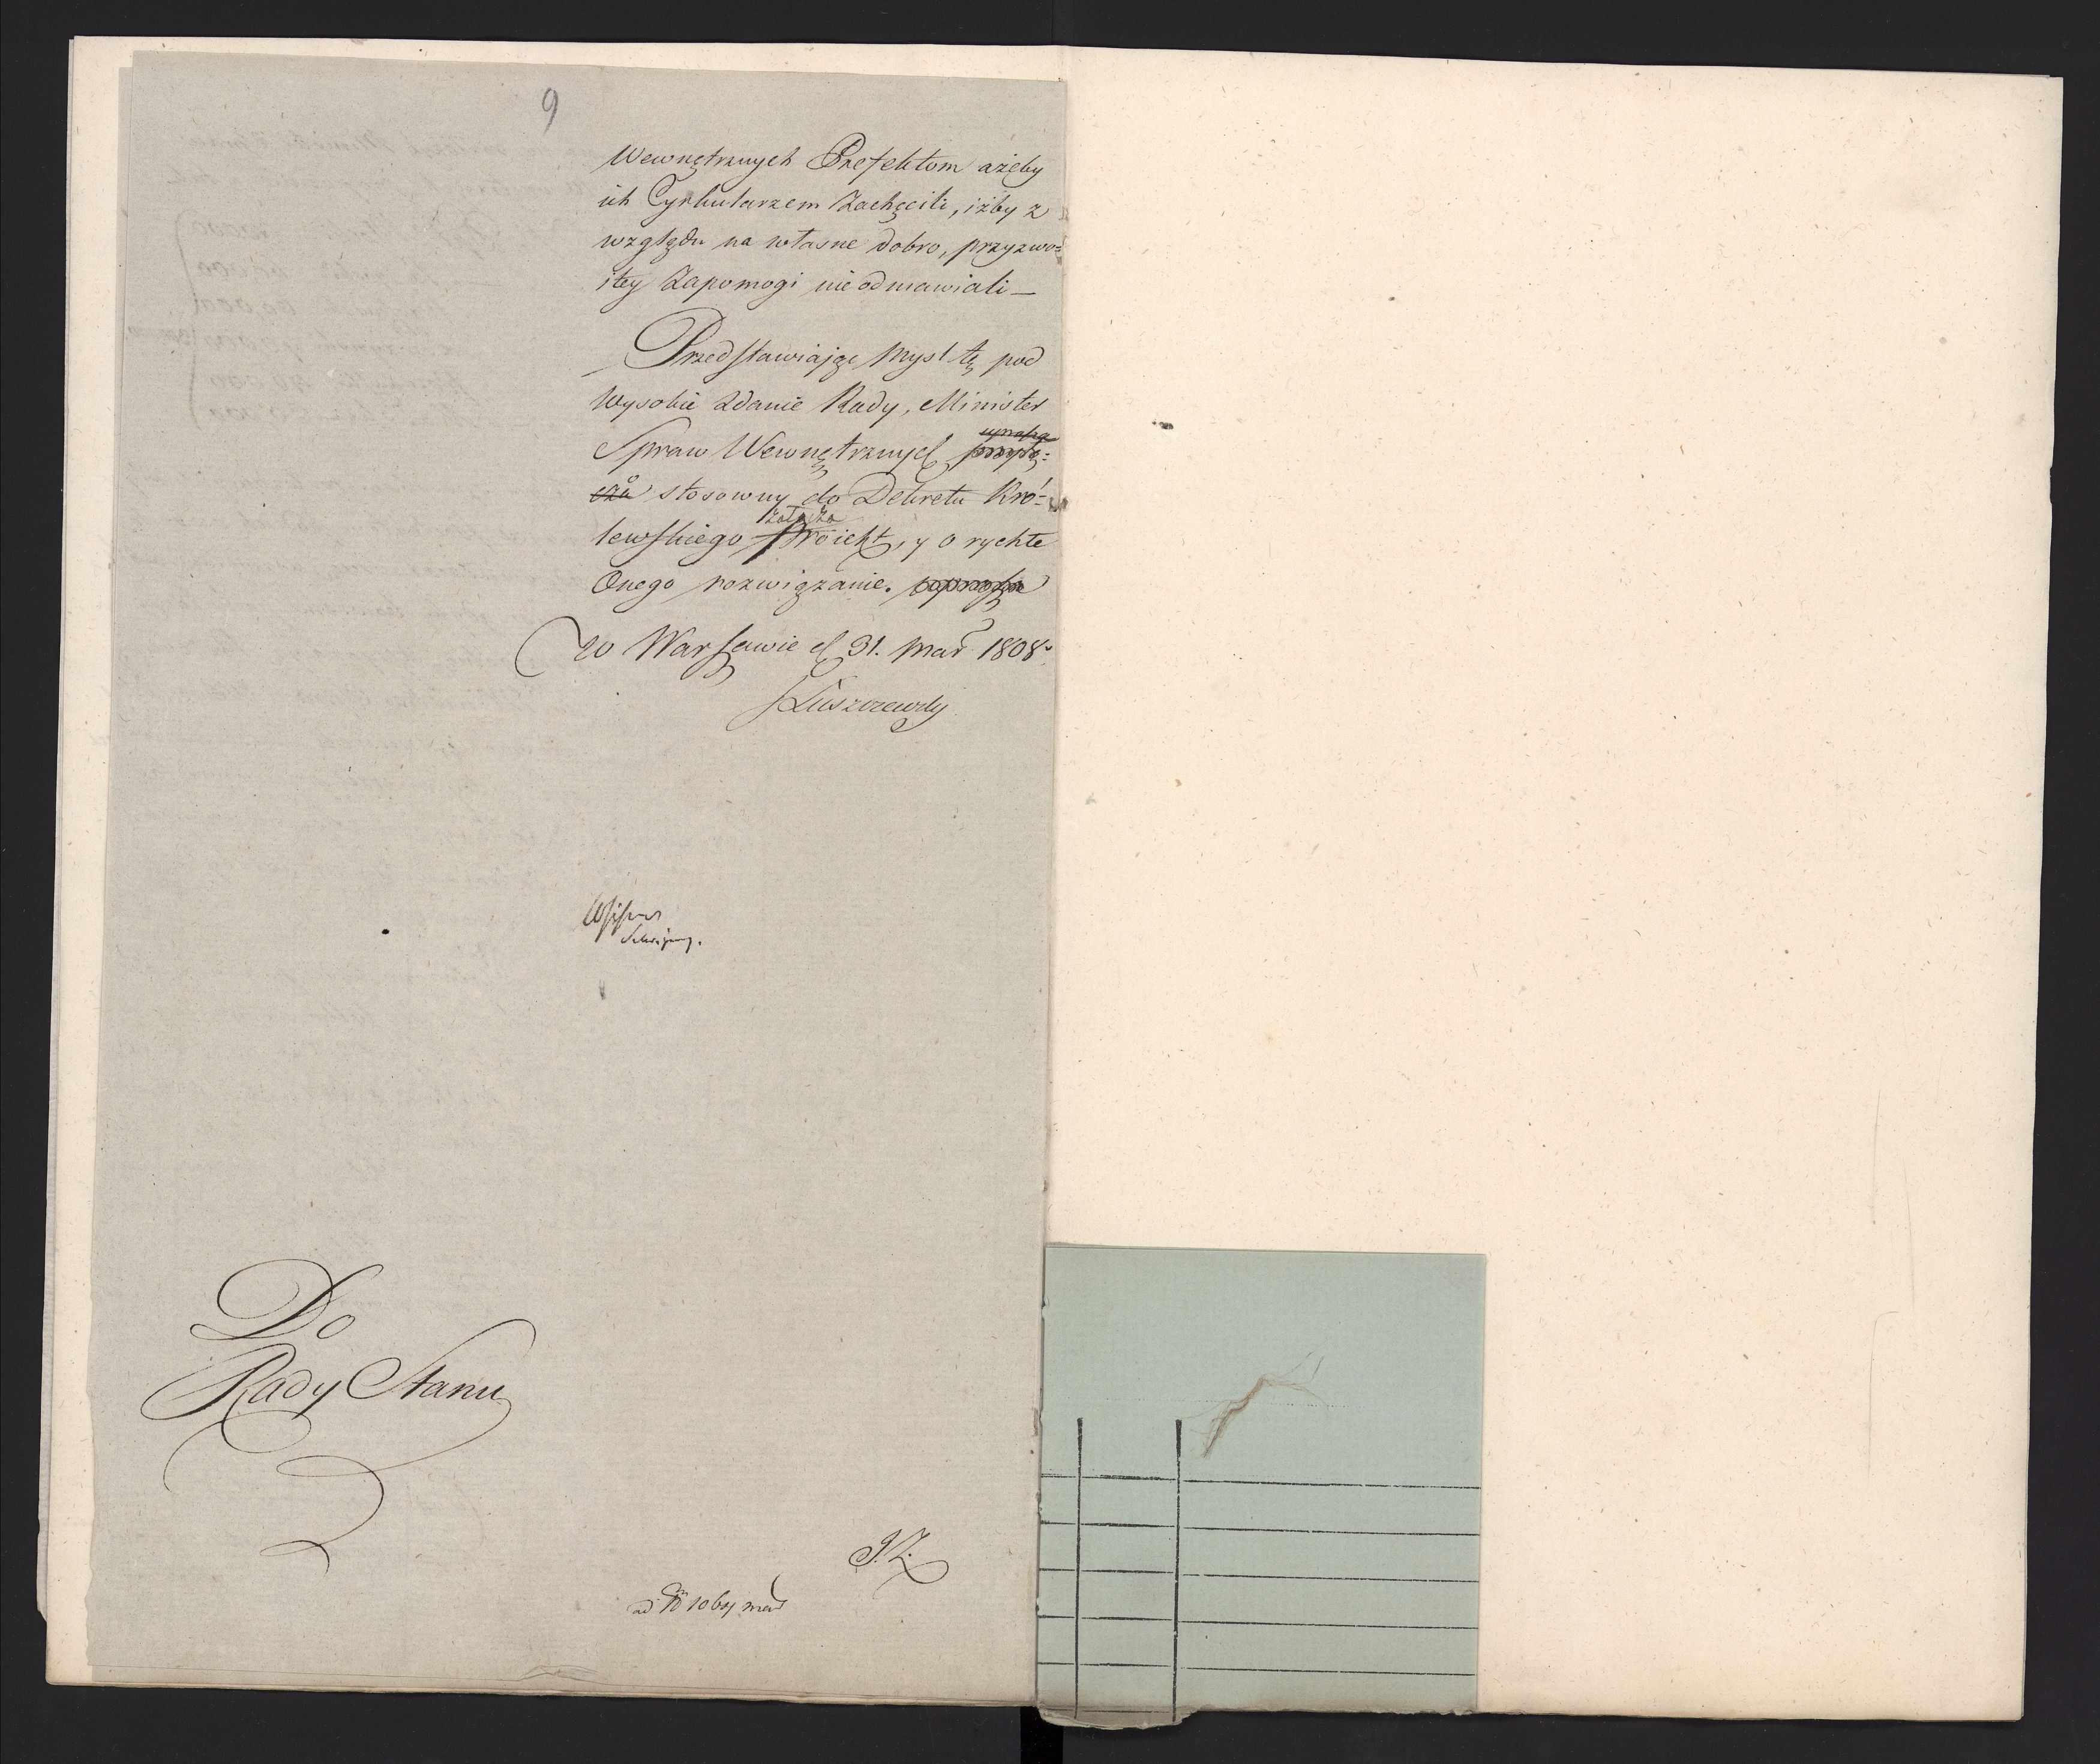 9
Wewnętrznych Prefektom ażeby
ich Cyrkularzem Zachęcili, iżby z
względu na własne dobro, przyzwo=
itey Zapomogi nie odmawiali —
Przedstawiaiąc Mysl tę pod
Wysokie Zdanie Rady, Minister
Spraw Wewnętrznych
stosowny do Dekretu Kró=
załącza
lewskiego Proiekt, y o rychłe
Onego rozwiązanie.
w Warszawie d 31. Mar 1808
Łuszczewski
Do
Rady Stanu
J.Z.